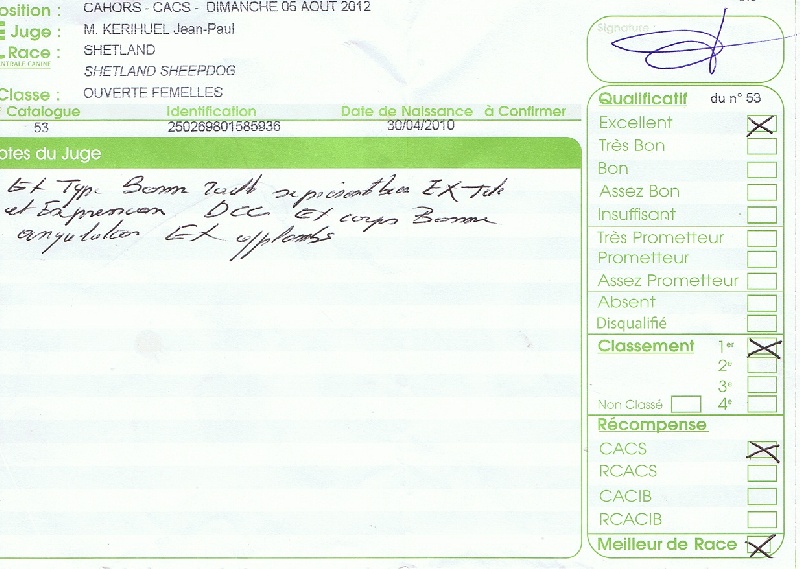 osition : CAHORS - CACS - DIMANCHE 05 AOUT 2012
E Juge : M. KERIHUEL Jean-Paul
L Race : SHETLAND
CENTRALE CANINE
SHETLAND SHEEPDOG
Classe : OUVERTE FEMELLES
Catalogue Identification Date de Naissance à Confirmer
53 250269801585936 30/04/2010
otes du Juge
Ex Type Bonne
et Expression DCC Ex corps Bonne
angulation Ex applombs
Signature :
Qualificatif du n° 53
Excellent
Très Bon
Bon
Assez Bon
Insuffisant
Très Prometteur
Prometteur
Assez Prometteur
Absent
Disqualifié
Classement 1er
2e
3e
Non Classé 4e
Récompense
CACS
RCACS
CACIB
RCACIB
Meilleur de Race